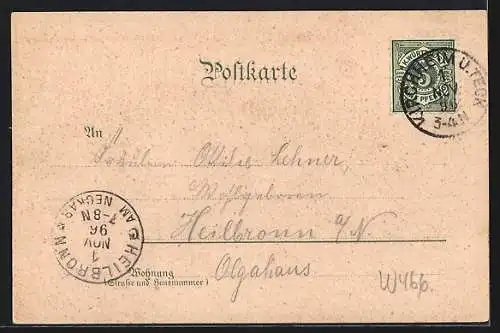 Postkarte
K. WÜRTT. POST
5
PFENNIG
KIRCHHEIM U. TECK
1
NOV
96
3-4N
An
Fräulein Ottilie Lehner,
Wohlgeboren
Heilbronn a/N.
Olgahaus
HEILBRONN
AM NECKAR
1
NOV
96
7-8N
G
Wohnung
(Straße und Hausnummer)
W46b.